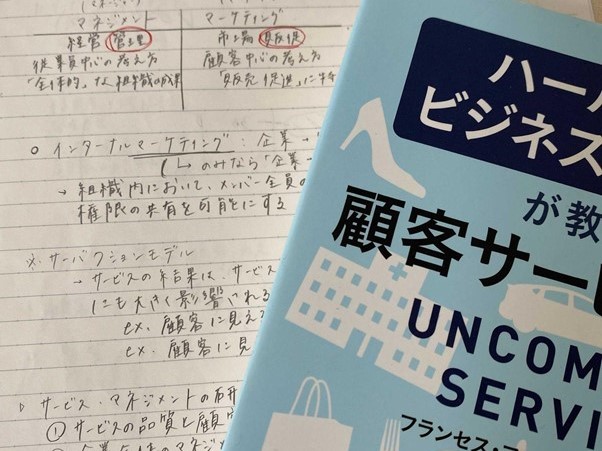 マネジメント
マーケティング
経営 管理
市場 販促
従業員中心の考え方
顧客中心の考え方
「全体的」な組織の成果
「販売促進」に
○ インターナルマーケティング：企業→
のみなら「企業→
→ 組織内において、メンバー全員の
権限の共有を可能にする
※ サーバクションモデル
→ サービスの結果は、サービス
にも大きく影響される
ex. 顧客に見え
ex. 顧客に見
サービス・マネジメントの研
① サービスの品質と顧客
ハー
ビジネス
が教
顧客サービ
UNCOM
SERVI
フランセス・フ